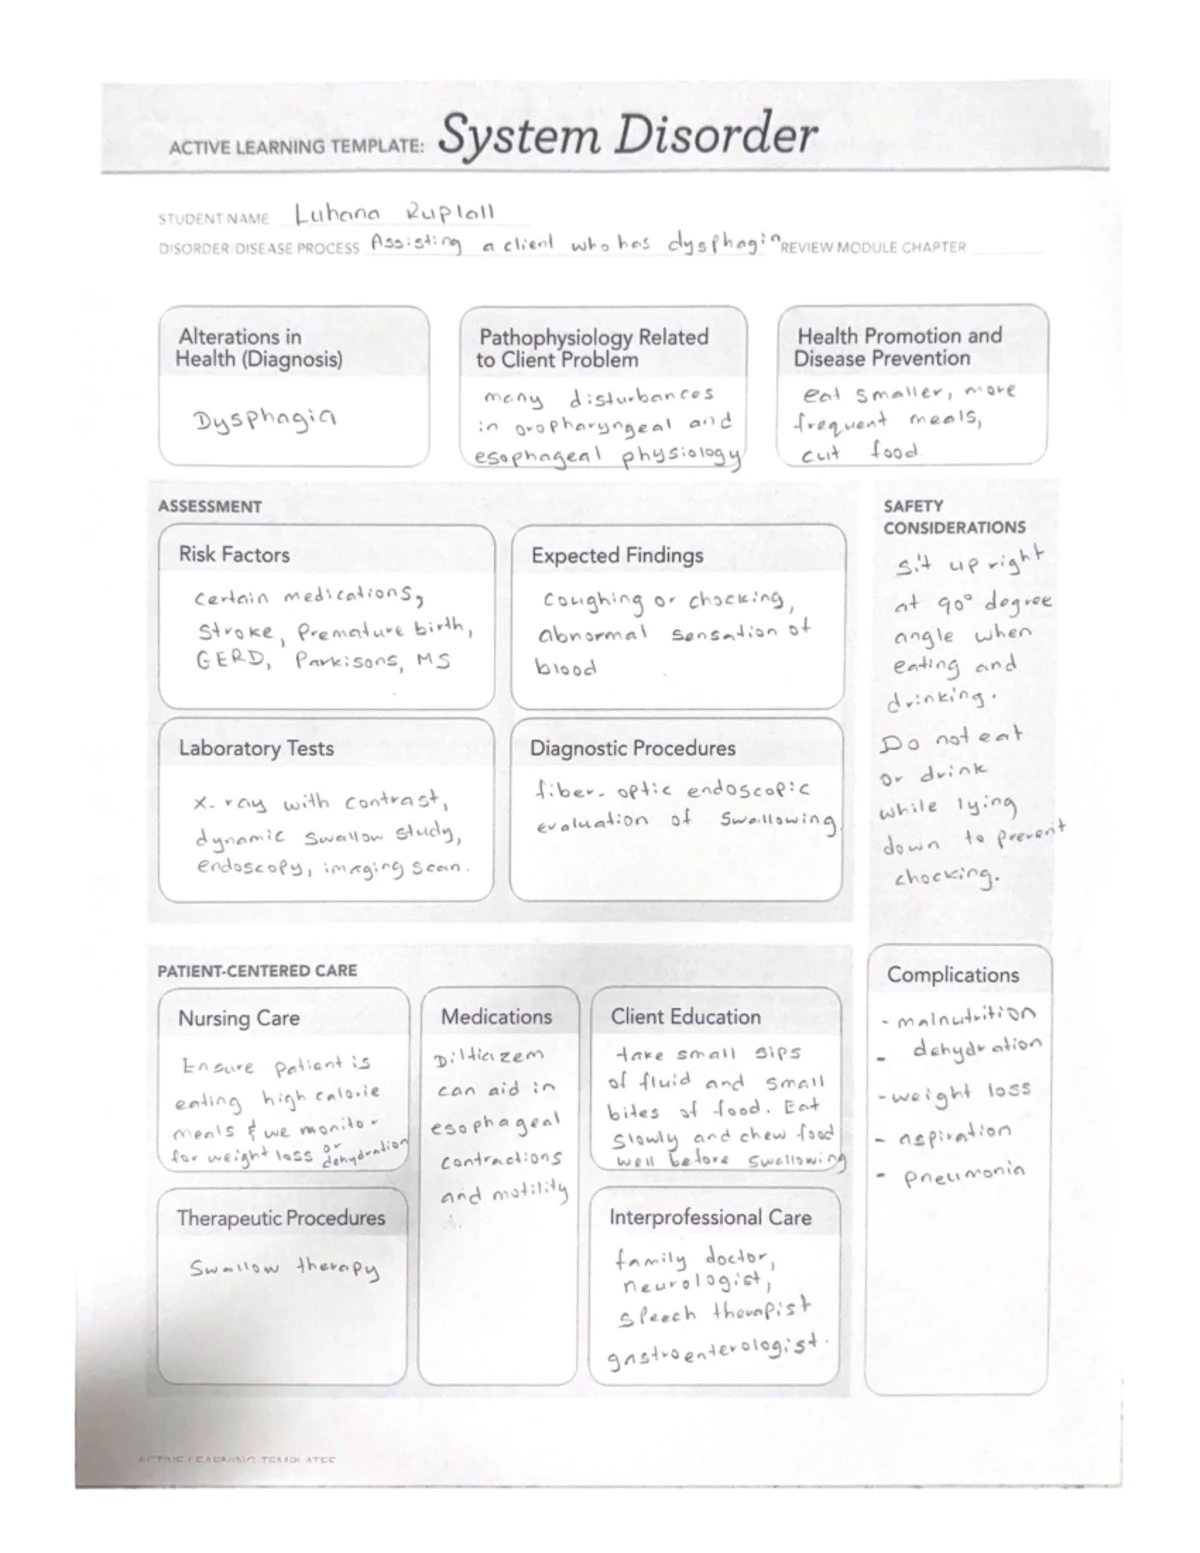 ACTIVE LEARNING TEMPLATE: System Disorder
STUDENT NAME Luhana Ruplall
DISORDER/DISEASE PROCESS Assisting a client who has dysphagia REVIEW MODULE CHAPTER
Alterations in
Health (Diagnosis)
Dysphagia
Pathophysiology Related
to Client Problem
many disturbances
in oropharyngeal and
esophageal physiology
Health Promotion and
Disease Prevention
eat smaller, more
frequent meals,
cut food
ASSESSMENT
Risk Factors
certain medications,
stroke, Premature birth,
GERD, Parkisons, MS
Expected Findings
coughing or chocking,
abnormal sensation of
blood
Laboratory Tests
x-ray with contrast,
dynamic swallow study,
endoscopy, imaging scan.
Diagnostic Procedures
fiber-optic endoscopic
evaluation of swallowing
SAFETY
CONSIDERATIONS
sit up right
at 90° degree
angle when
eating and
drinking.
Do not eat
or drink
while lying
down to prevent
chocking.
PATIENT-CENTERED CARE
Nursing Care
Ensure patient is
eating high calorie
meals & we monitor
for weight loss or dehydration
Medications
Diltiazem
can aid in
esophageal
contractions
and motility
Client Education
take small sips
of fluid and small
bites of food. Eat
slowly and chew food
well before swallowing
Therapeutic Procedures
Swallow therapy
Interprofessional Care
family doctor,
neurologist,
speech therapist
gastroenterologist.
Complications
- malnutrition
- dehydration
- weight loss
- aspiration
- pneumonia
ACTIVE LEARNING TEMPLATES